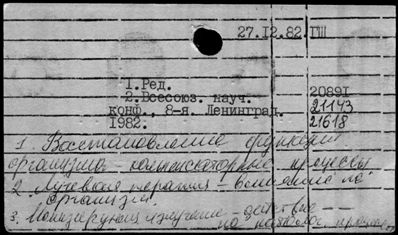 27.12.82 ГШ
1.Ред.
2.Всесоюз. науч.
конф., 8-я. Ленинград.
1982.
20891
21143
21618
1. Восстановление функций
организма - компенсаторные процессы
2. Лучевая терапия - влияние на
организм
3. Ионизирующия излучение - действие
на